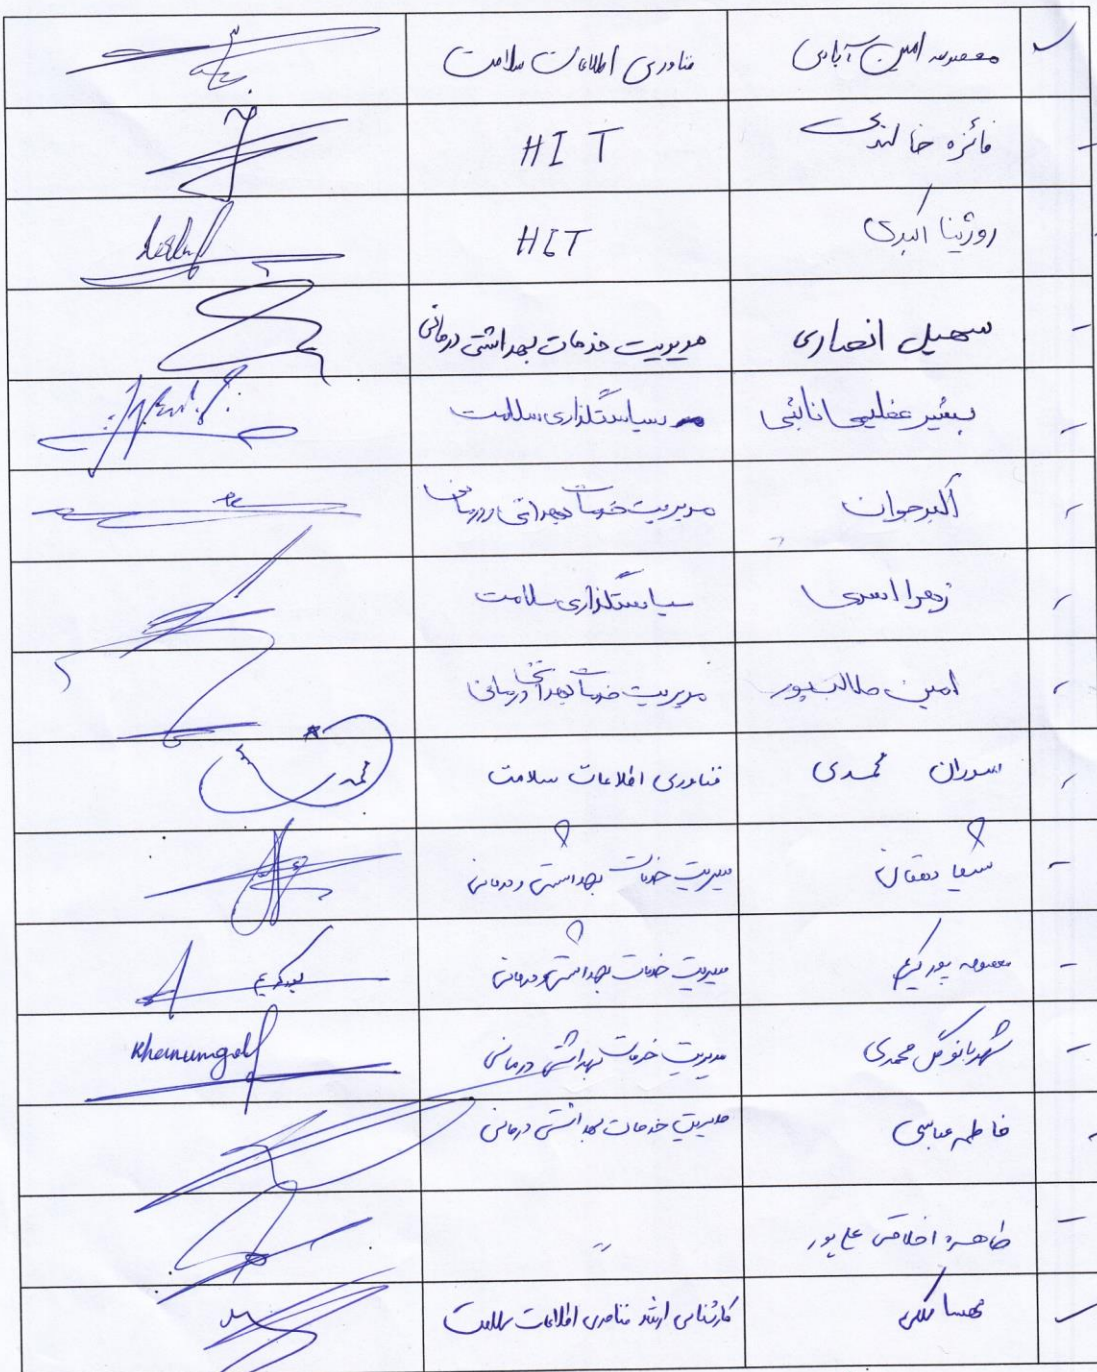 معصومه امین آبادی فناوری اطلاعات سلامت
فائزه خالندی HIT
روژینا اکبری HIT
سهیل انصاری مدیریت خدمات بهداشتی درمانی
بشیر عظیمی نائبی سیاستگذاری سلامت
اکبر جوان مدیریت خدمات بهداشتی و درمانی
زهرا اسدی سیاستگذاری سلامت
امین طالب‌پور مدیریت خدمات بهداشتی درمانی
سوران محمدی فناوری اطلاعات سلامت
شیما دهقان مدیریت خدمات بهداشتی و درمانی
معصومه پورکریم مدیریت خدمات بهداشتی و درمانی
شهربانو گل محمدی مدیریت خدمات بهداشتی درمانی
فاطمه عباسی مدیریت خدمات بهداشتی درمانی
طاهره اخلاقی علی پور "
مهسا ملکی کارشناس ارشد فناوری اطلاعات سلامت